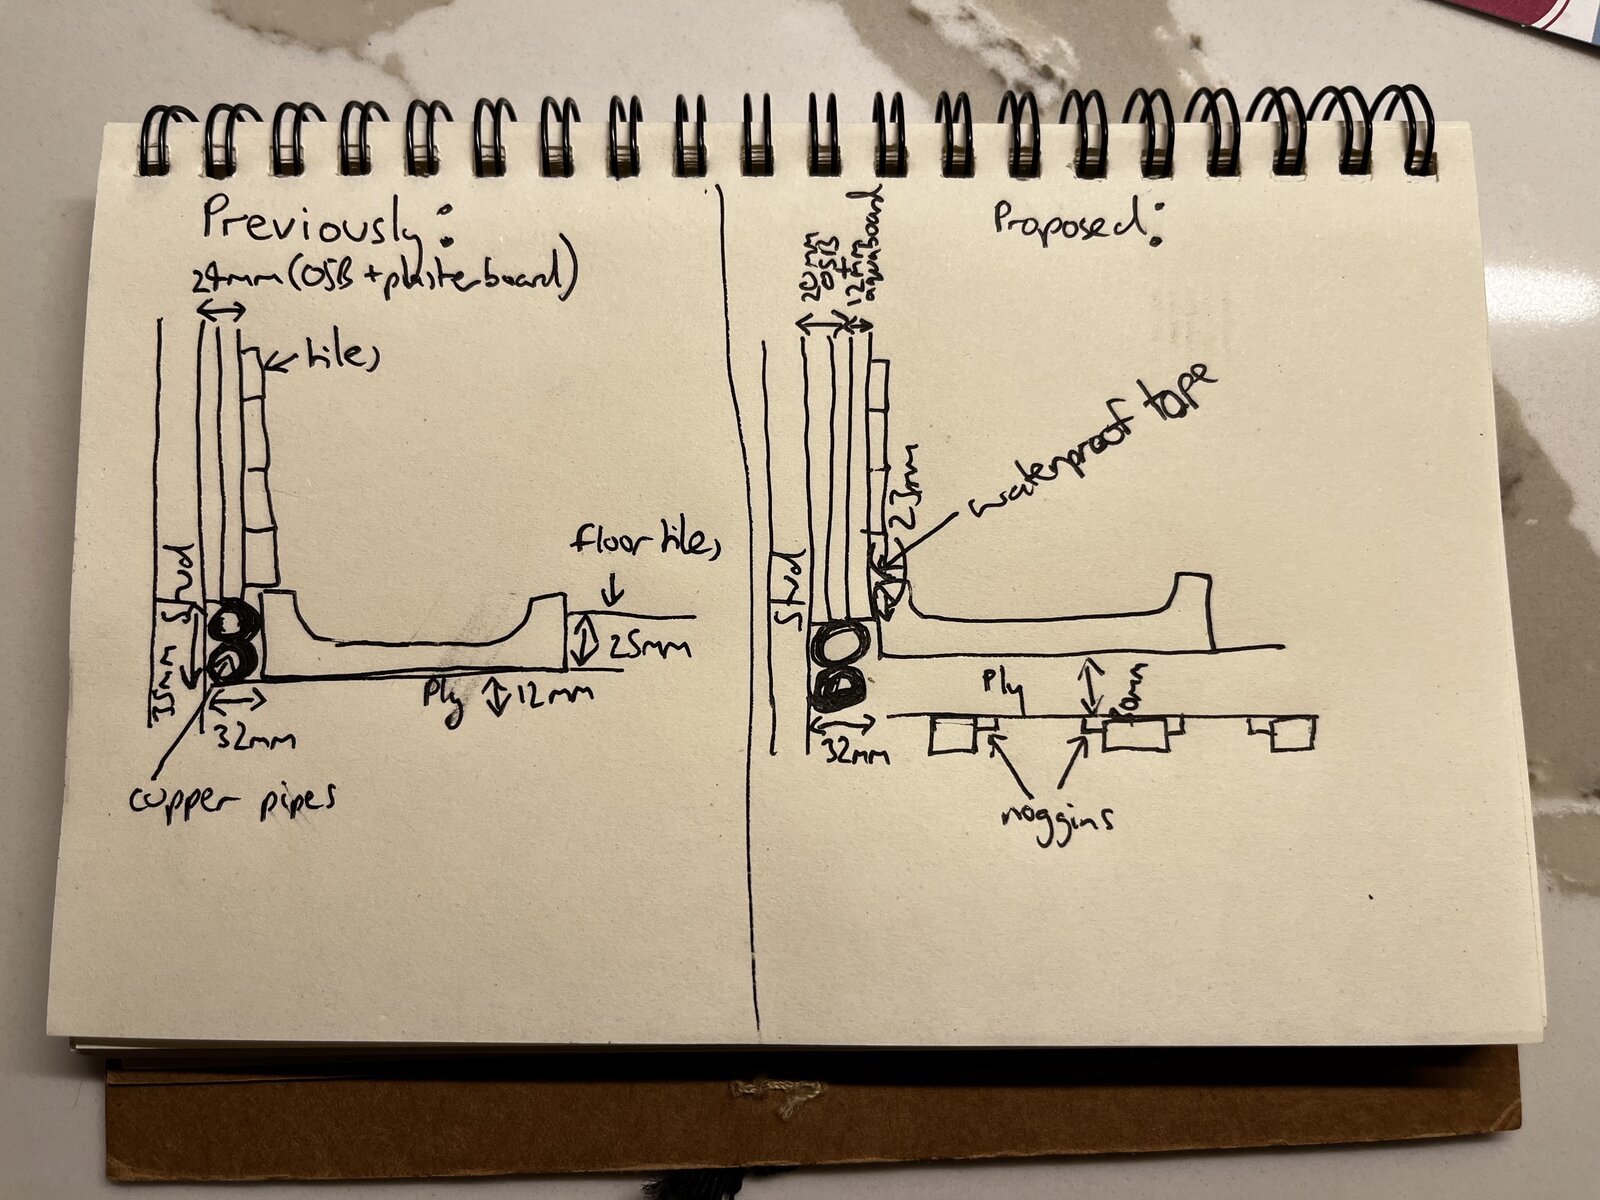 Previously:
24mm (OSB + plasterboard)
tiles
Stud
floor tiles
35mm
25mm
Ply
12mm
32mm
copper pipes
Proposed:
20mm
OSB
+
12mm
aquaboard
waterproof tape
23mm
Stud
Ply
32mm
noggins